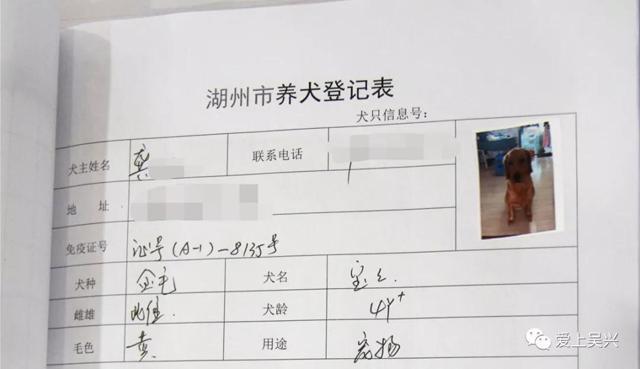 湖州市养犬登记表
犬只信息号：
犬主姓名 龚 联系电话
地 址
免疫证号 证号(A-1)-8135号
犬种 金毛 犬名 宝
雌雄 雌 犬龄 4Y+
毛色 黄 用途 宠物
爱上吴兴